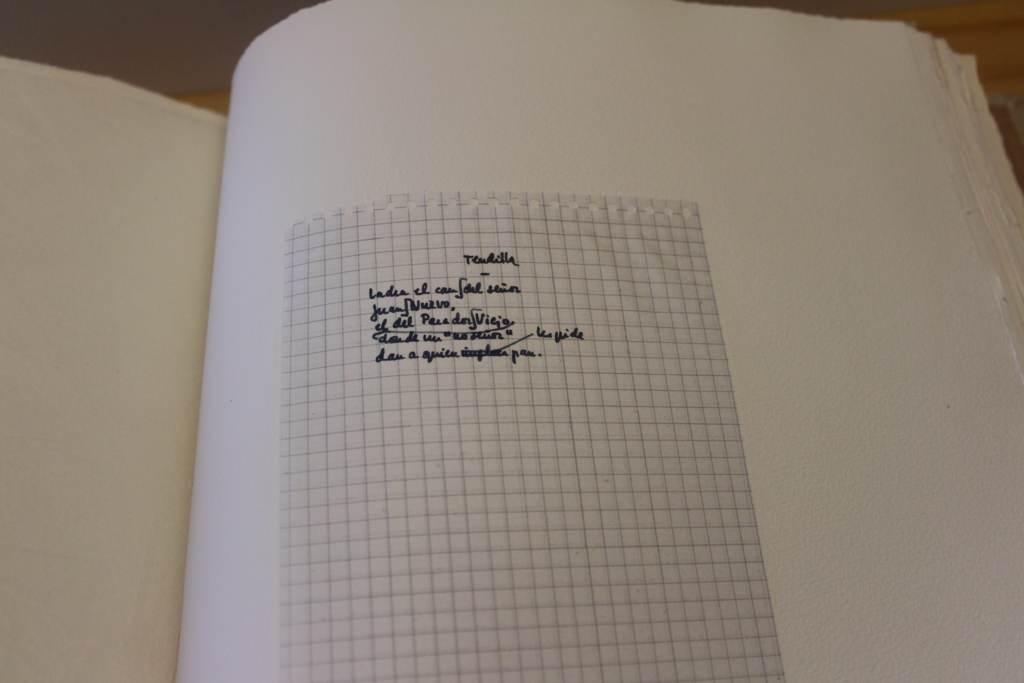 Tendilla
Ladra el can del señor
Juan Nuevo,
el del Parador Viejo,
donde un "no señor"
dan a quien implora pan.
les pide